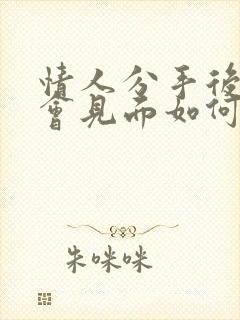 情人分手後
會見面如何
朱咪咪